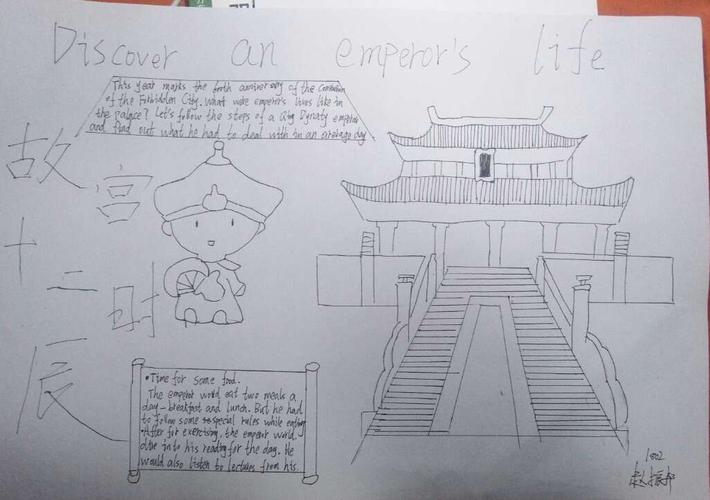 Discover an emperor's life
This year marks the forth anniversary of the
of the Forbidden City. What were emperor's lives like in
the palace? Let's follow the steps of a Qing Dynasty
and find out what he had to deal with in an average day
故
宫
十
二
时
辰
• Time for some food.
The emperor world eat two meals a
day - breakfast and lunch. But he had
to follow some special rules while eating
After for exercising, the emperor world
dive into his reading for the day. He
would also listen to lectures from his.
1002